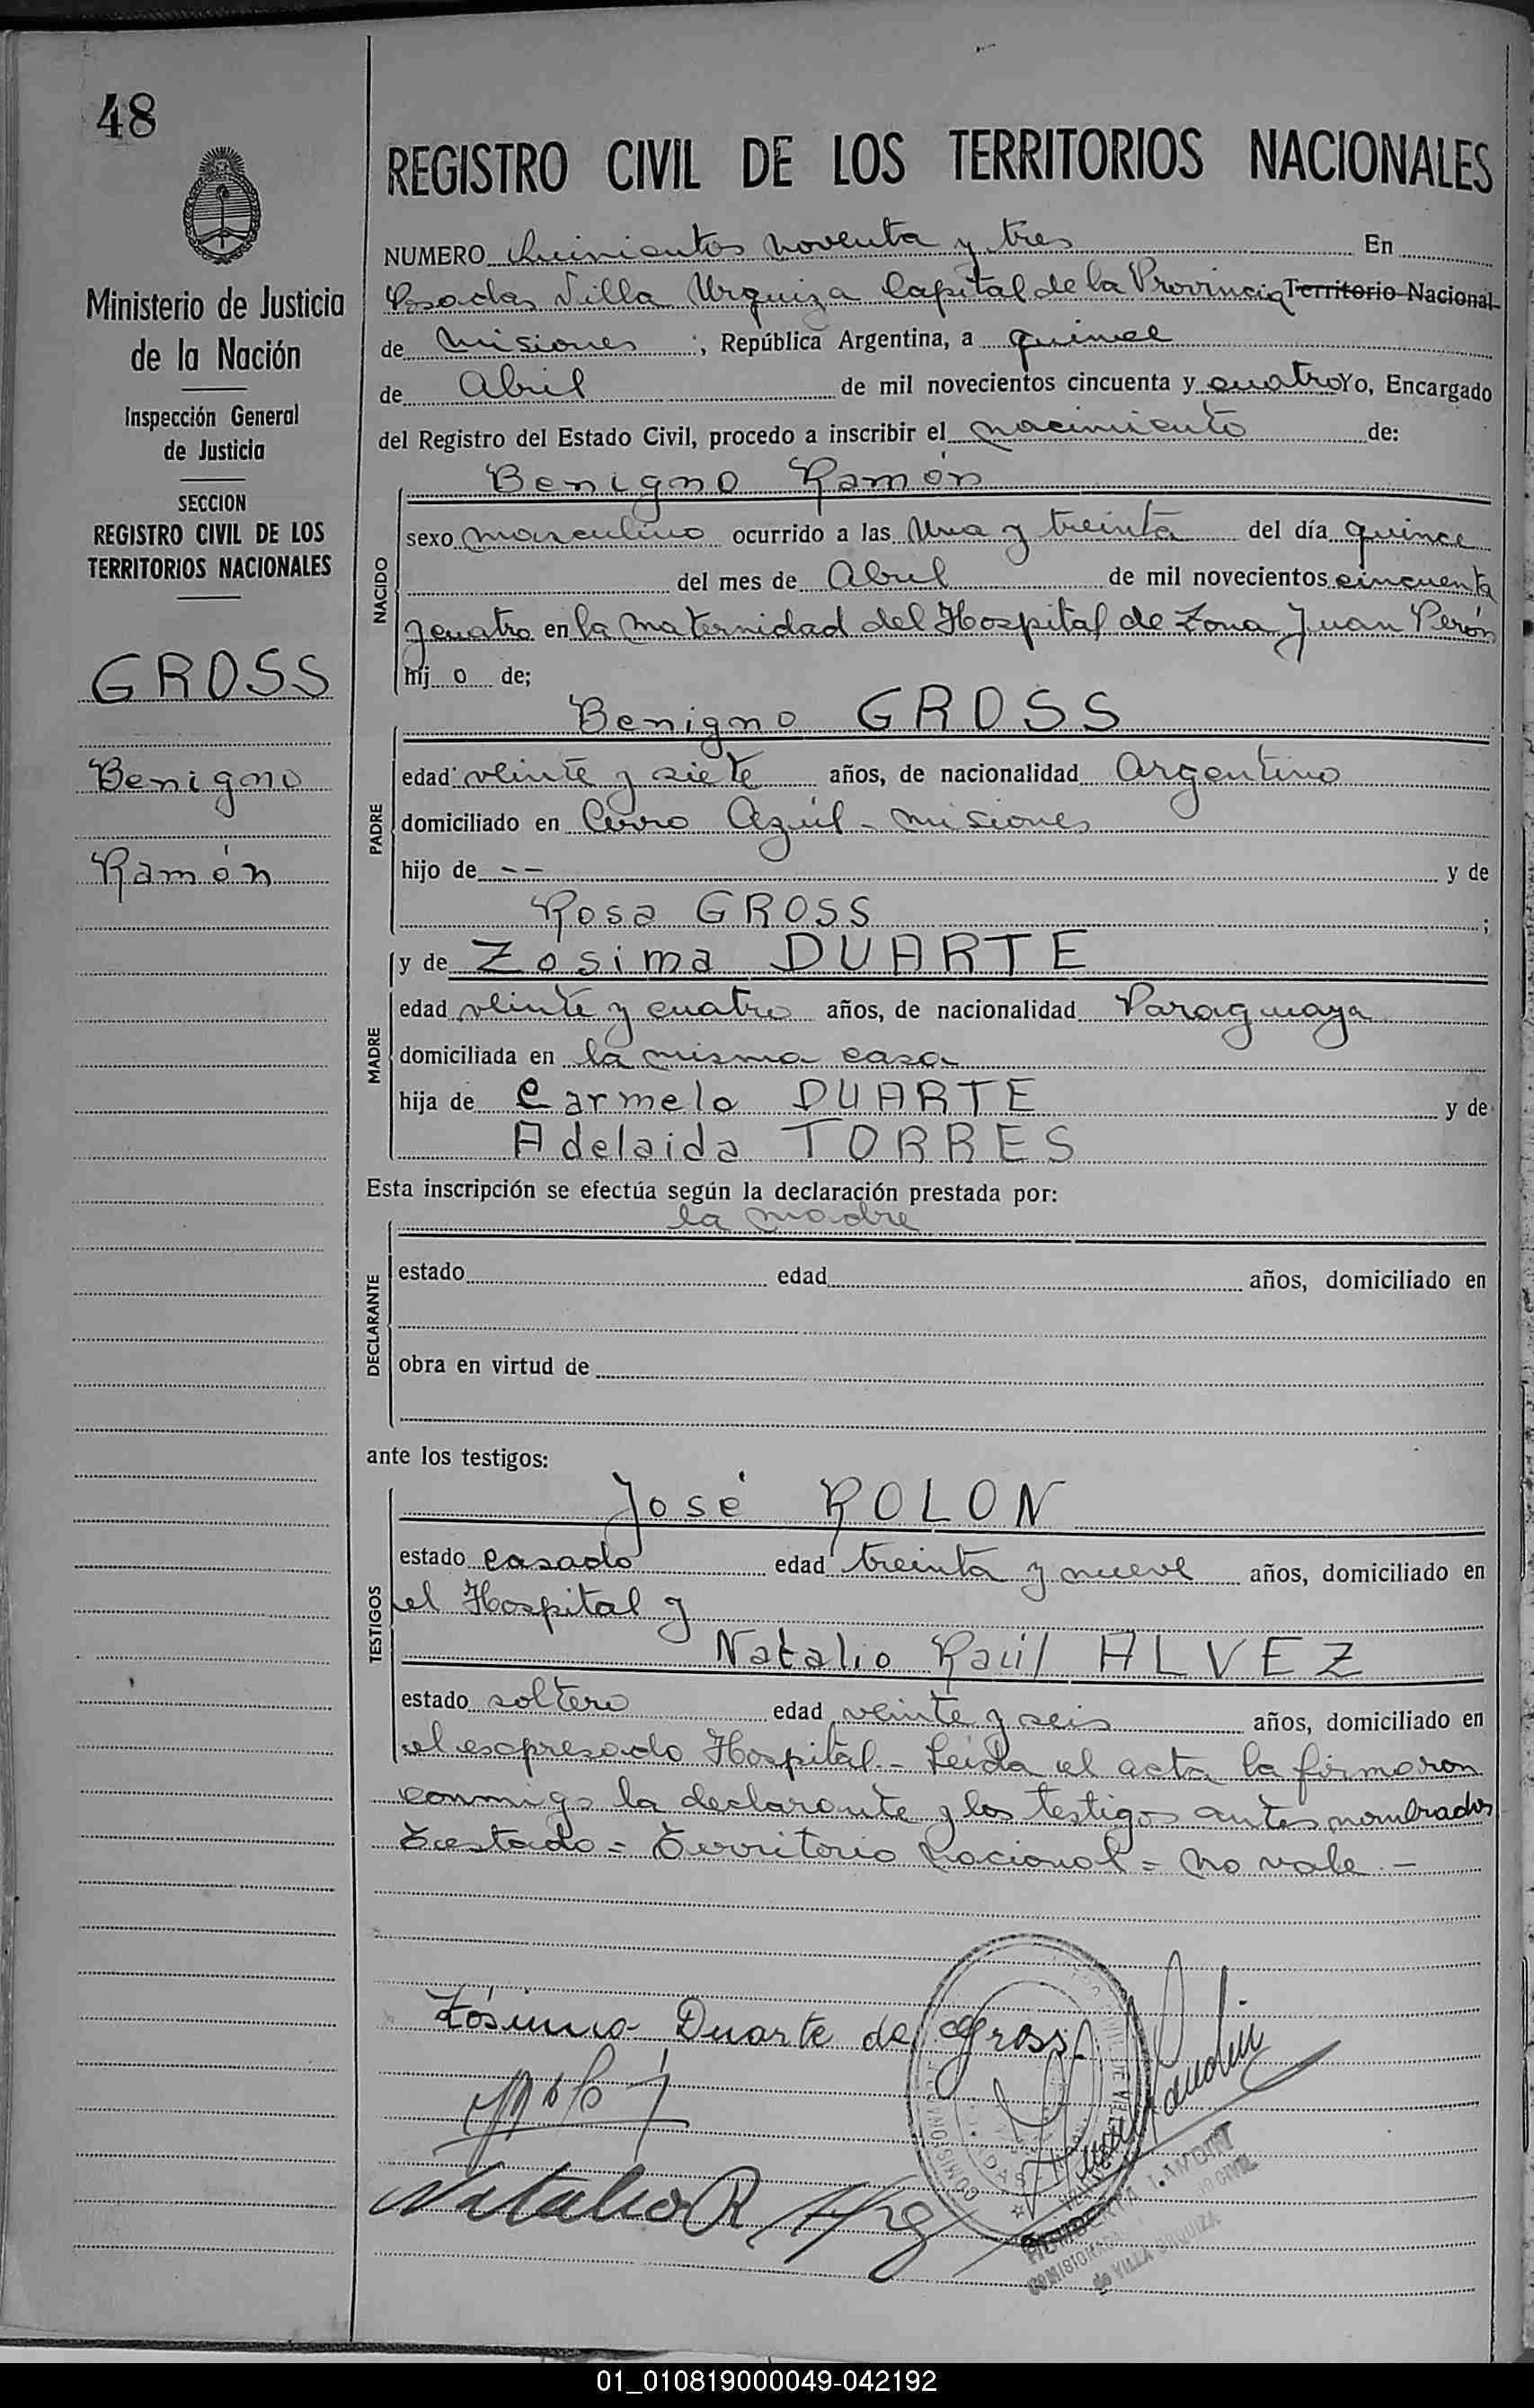 48
Ministerio de Justicia
de la Nación
Inspección General
de Justicia
SECCION
REGISTRO CIVIL DE LOS
TERRITORIOS NACIONALES
GROSS
Benigno
Ramón
REGISTRO CIVIL DE LOS TERRITORIOS NACIONALES
NUMERO Quinientos noventa y tres En
Posadas Villa Urquiza Capital de la Provincia Territorio Nacional
de Misiones, República Argentina, a quince
de Abril de mil novecientos cincuenta y cuatro Yo, Encargado
del Registro del Estado Civil, procedo a inscribir el nacimiento de:
Benigno Ramón
NACIDO
sexo masculino ocurrido a las Una y treinta del día quince
del mes de Abril de mil novecientos cincuenta
y cuatro en la maternidad del Hospital de Zona Juan Perón
hijo de;
Benigno GROSS
PADRE
edad veinte y siete años, de nacionalidad Argentino
domiciliado en Cerro Azúl - Misiones
hijo de -- y de
Rosa GROSS;
y de Zosima DUARTE
MADRE
edad veinte y cuatro años, de nacionalidad Paraguaya
domiciliada en la misma casa
hija de Carmelo DUARTE y de
Adelaida TORRES
Esta inscripción se efectúa según la declaración prestada por:
la madre
DECLARANTE
estado edad años, domiciliado en
obra en virtud de
ante los testigos:
José ROLON
TESTIGOS
estado casado edad treinta y nueve años, domiciliado en
el Hospital y
Natalio Raúl ALVEZ
estado soltero edad veinte y seis años, domiciliado en
el expresado Hospital.- Leída el acta la firmaron
conmigo la declarante y los testigos antes nombrados
Testado = Territorio Nacional = no vale.-
Zósima Duarte de Gross
Natalio R
de VILLA URQUIZA
01_010819000049-042192